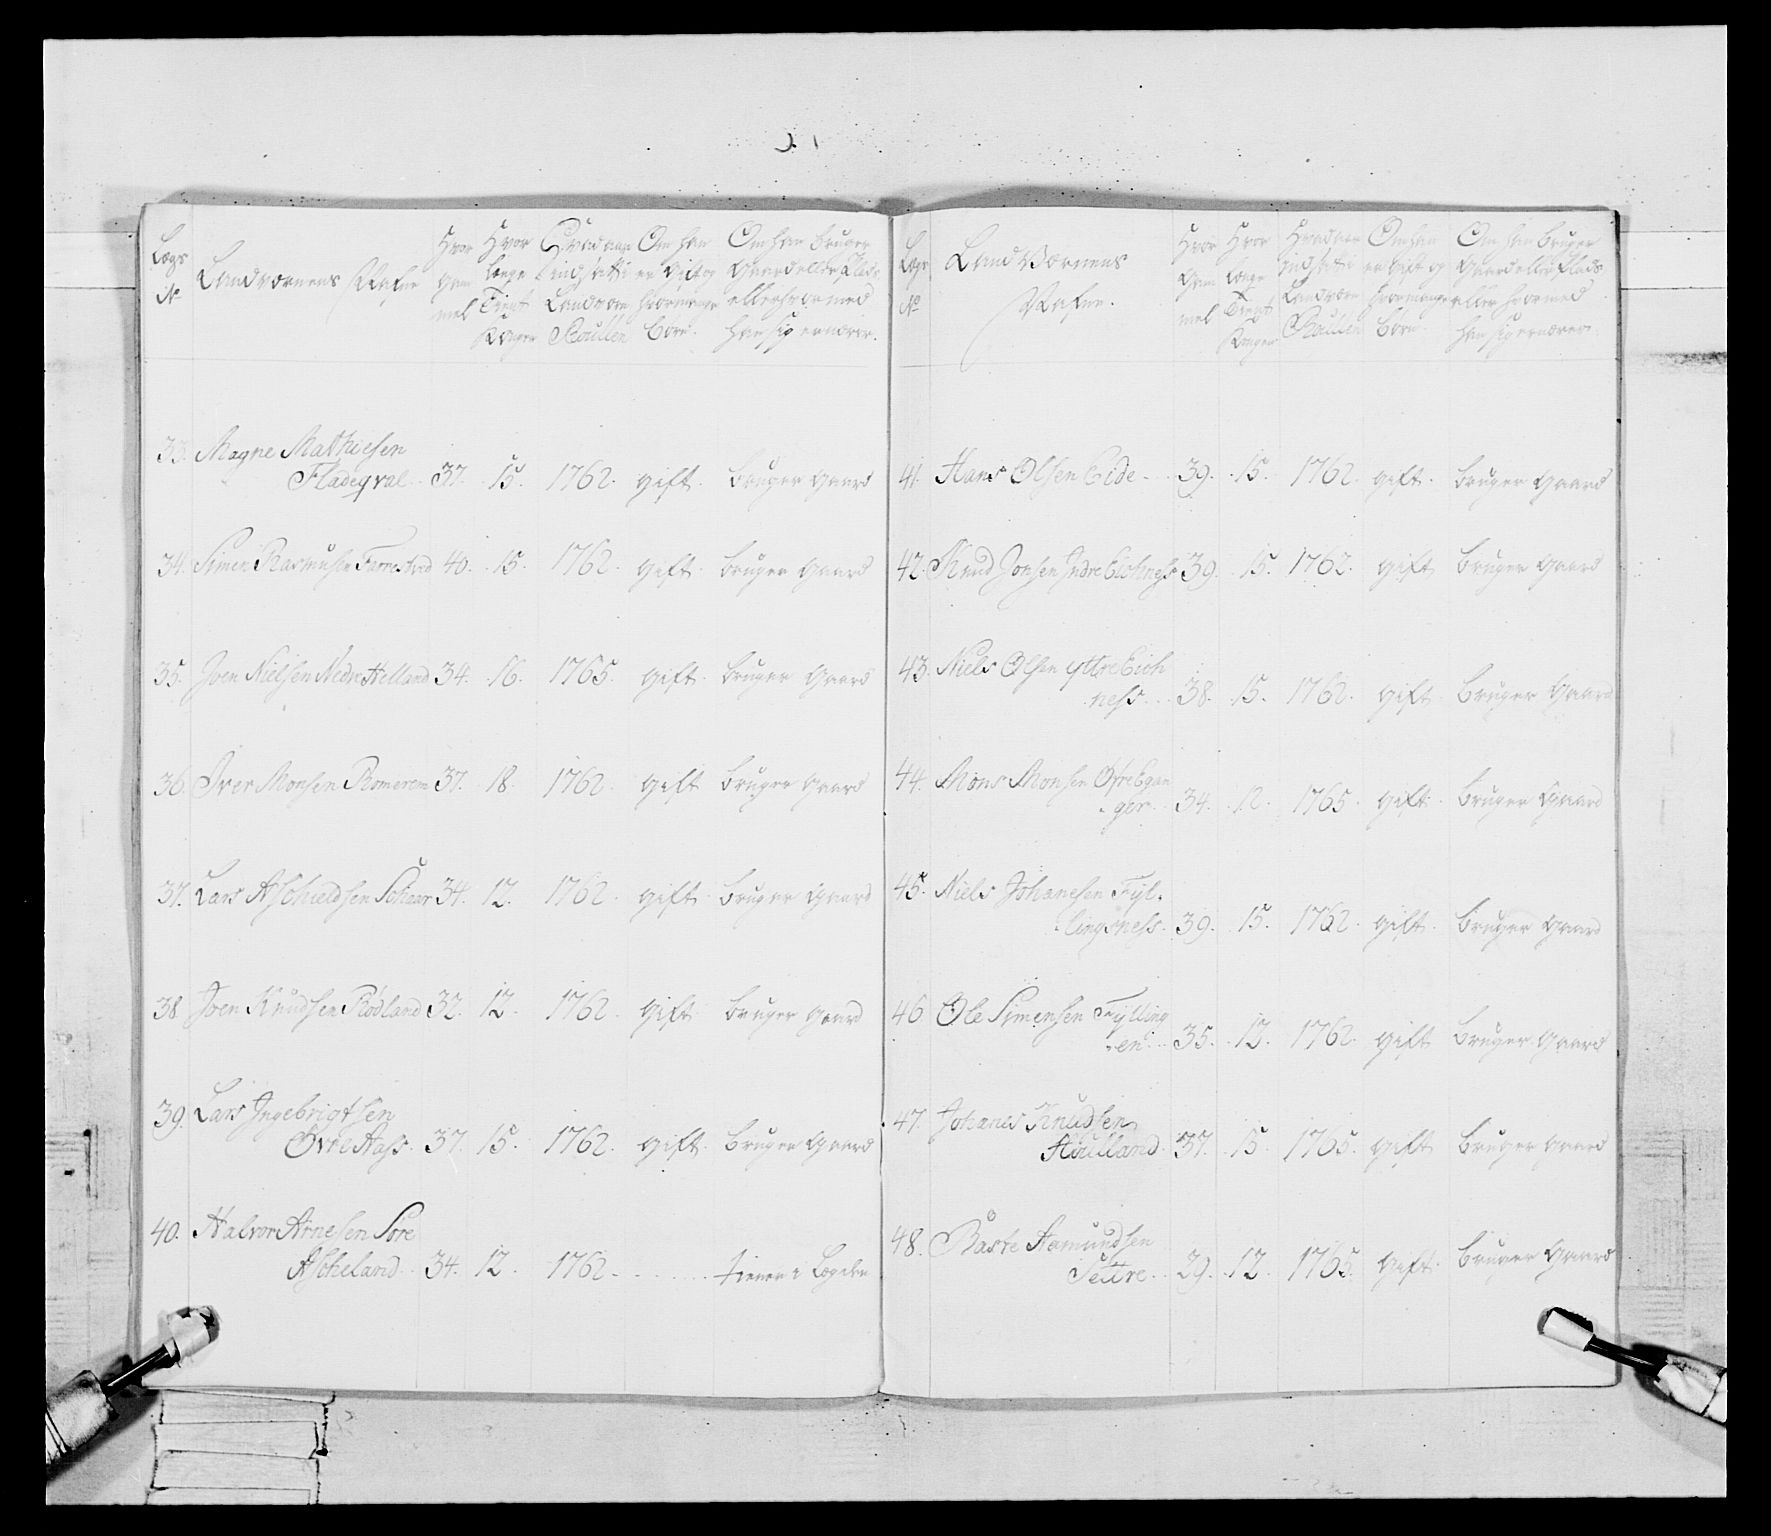 Lægs No
Landværnens Nafne
Hvor gam mel
Hvor længe Tient Konger
Hvad aar indsatt i Landværn Roullen
Om han er gift og hvor mange börn
Om han bruger Gaard eller Plads eller hvor med han sig ernærer.
33. Magne Mathiesen
Fladeqval 37. 15. 1762. gift. bruger gaard
34. Simen Rasmusen Farrestved 40. 15. 1762. gift. bruger gaard
35. Joen Nielsen Nedre Helland 34. 16. 1765. gift. bruger gaard
36. Iver Monsen Romerem 37. 18. 1762. gift bruger gaard
37. Lars Aschieldsen Schaar 34. 12. 1762. gift bruger gaard
38 Joen Knudsen Rödland 32. 12. 1762. gift bruger gaard
39. Lars Ingebrigtsen
Övre Aass. 37. 15. 1762. gift. bruger gaard
40. Halvor Arnesen Söre
Ascheland 34. 12. 1762. tiener i Legden
Lægs No
Land Værnens Nafne.
Hvor Gam mel
Hvor længe Tient Kongen
Hvad aar indsatt i Landværn Roullen
Om han er gift og hvor mange börn
Om han bruger Gaard eller Plads eller hvor med han sig ernærer.
41. Hans Olsen Eide 39. 15. 1762. gift. bruger gaard
42. Knud Jonsen Indre Eichness 39. 15. 1762. gift bruger gaard
43. Niels Olsen yttre Eich
ness 38. 15. 1762. gift bruger gaard
44. Mons Monsen Öfre Egan
ger 34. 12. 1765. gift. bruger gaard
45. Niels Johanesen Fyl-
lingsness. 39. 15. 1762. gift. bruger gaard
46 Ole Simensen Fylling
en 35. 12. 1762. gift bruger gaard
47. Johanes Knudsen
Houlland 37. 15 1765. gift bruger gaard
48. Baste Aamundsen
Settre 29. 12. 1765. gift. bruger gaard